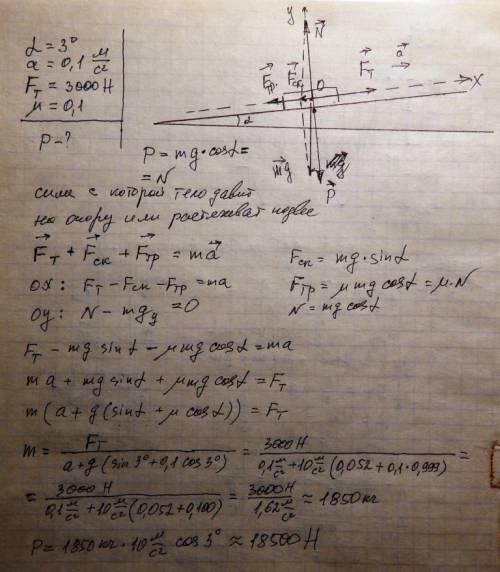 α = 3°
a = 0,1 м/с²
Fт = 3000 Н
μ = 0,1
P = ?
y
N
Fтр
Fск
O
Fт
a
X
α
mg
P
P = mg·cosα =
= N
сила с которой тело давит
на опору или растягивает подвес
Fт + Fск + Fтр = ma
Fск = mg·sinα
OX: Fт − Fск − Fтр = ma
Fтр = μmg cosα = μ·N
OY: N − mgy = 0
N = mg cosα
Fт − mg sinα − μmg cosα = ma
ma + mg sinα + μmg cosα = Fт
m(a + g(sinα + μ cosα)) = Fт
m = Fт / (a + g(sin3° + 0,1 cos3°)) = 3000 Н / (0,1 м/с² + 10 м/с² (0,052 + 0,1·0,999)) =
= 3000 Н / (0,1 м/с² + 10 м/с² (0,052 + 0,100)) = 3000 Н / 1,62 м/с² ≈ 1850 кг
P = 1850 кг·10 м/с² cos3° ≈ 18500 Н